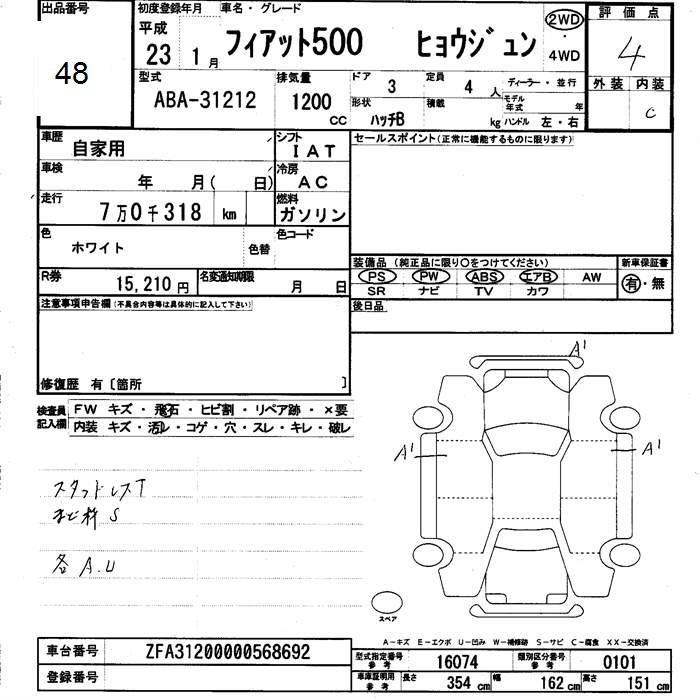 出品番号
48
初度登録年月
平成
23 1月
車名・グレード
フィアット500 ヒョウジュン
2WD
・
4WD
評価点
4
外装 内装
C
型式
ABA-31212
排気量
1200
CC
ドア
3
定員
4 人
ディーラー・並行
形状
ハッチB
積載
kg
モデル年式 年
ハンドル 左・右
車歴
自家用
シフト
IAT
車検
年 月( 日)
冷房
AC
走行
7万0千318 km
燃料
ガソリン
色
ホワイト
色替
色コード
R券
15,210 円
名変通知期限
月 日
セールスポイント(正常に機能するものに限ります)
装備品 (純正品に限り○をつけてください)
PS PW ABS エアB AW
SR ナビ TV カワ
新車保証書
有・無
後日品
注意事項申告欄(不具合内容等は具体的に記入して下さい)
修復歴 有〔箇所 〕
検査員記入欄
FW キズ・飛石・ヒビ割・リペア跡・×要
内装 キズ・汚レ・コゲ・穴・スレ・キレ・破レ
スタッドレスT
S
各 A.U
A1
A1
A1
スペア
A-キズ E-エクボ U-凹み W-補修跡 S-サビ C-腐食 XX-交換済
車台番号
ZFA31200000568692
登録番号
型式指定番号
参考
16074
類別区分番号
参考
0101
車庫証明用
参考
長さ 354 cm
幅 162 cm
高さ 151 cm